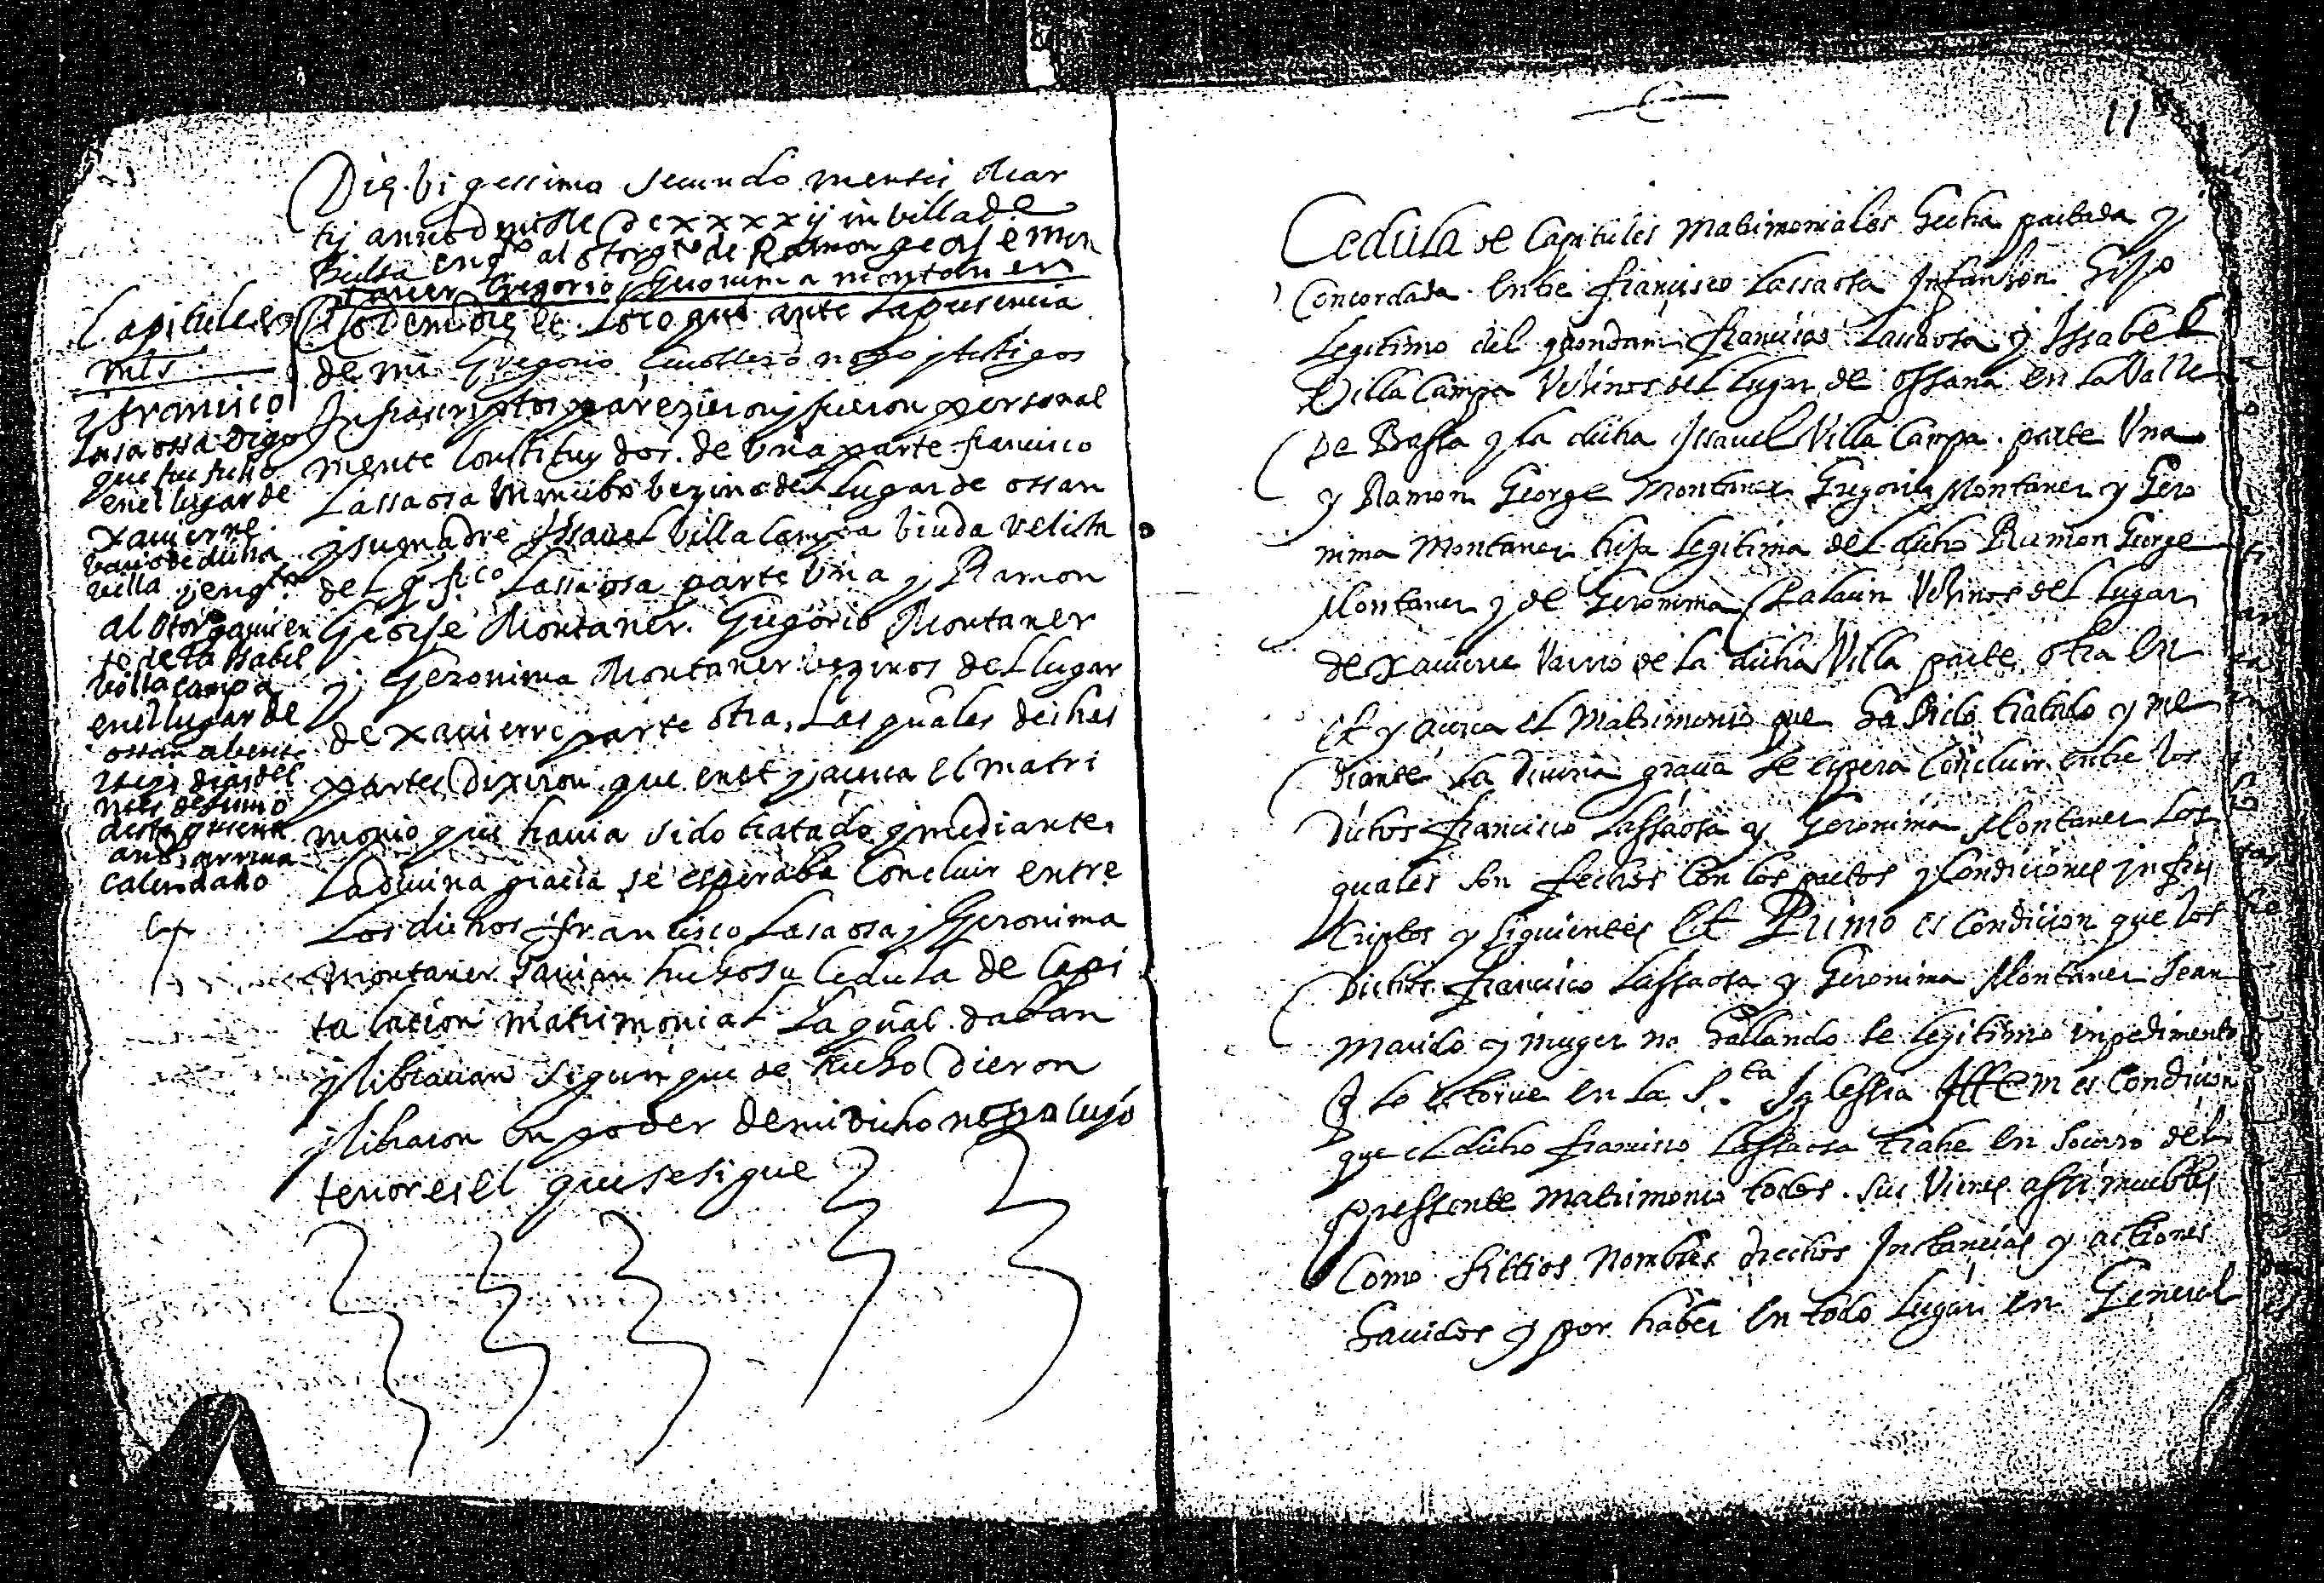 Die. vigessimo secundo mensis Mar
tij anno D MDCxxxxij in villa de
Bielsa en q.to al otorg.to de Ramon george mon
taner Gregorio y Gironima montaner
Eodem die et Loco que ante la presencia
de mi Gregorio nott.o y testigos
Infrascriptos parezieron y fueron personal
mente Constituydos. de una parte francisco
Lassaosa Mancebo vezino del Lugar de ossan
y su madre Yssavel Villa Campa biuda relicta
del q.o fr.co Lassaosa parte una y Ramon
George Montaner. Gregorio Montaner
y Geronima Montaner vezinos del lugar
de Xavierre parte otra, Las quales dichas
partes Dixeron que en et y acerca el matri
monio que havia sido tratado y mediante
La divina gracia se esperaba Concluir entre
Los dichos francisco Lasaosa y Geronima
Montaner havian hecho su Cedula de Capi
tulacion matrimonial La qual daban
y libravan segun que de hecho Dieron
y libraron en poder de mi dicho not.o cuyo
tenor es el que se sigue
Capitules
mls
y francisco
Lasaossa digo
que fue fecho
en el lugar de
Xavierre
bario de dicha
villa y en q.to
al otorgamien
to de la Isabel
villa campa
en el lugar de
ossan a
dias del
mes de Junio
desta presente
año arriva
calendado
11
Cedula de Capitules Matrimoniales Hecha pactada y
Concordada entre francisco Lassaosa Infanson Hijo
Legitimo del quondam francisco Lassaosa y Issabel
Villa Campa Vezinos del Lugar de Ossana en la Valle
De Bassa y la dicha Issavel Villa Campa parte Una
y Ramon George Montaner Gregorio Montaner y Gero
nima Montaner hija Legitima del dicho Ramon George
Montaner y de Geronima Vezinos del Lugar
de Xavierre Varrio de la dicha Villa parte otra En
Et y acerca el Matrimonio que ha sido tratado y me
diante La Divina gracia se espera Concluir entre los
Dichos francisco Lassaosa y Geronima Montaner Los
quales son fechos con los pactos y Condiciones infras
Criptos y siguientes Et Primo es Condicion que los
Dichos francisco Lassaosa y Geronima Montaner sean
Marido y muger no hallando se legitimo inpedimento
q Lo estorve en la S.ta Iglessia Ittem es Condicion
que el dicho francisco Lassaosa trahe en socorro del
pressente Matrimonio todos. sus Vienes assi muebles
Como sittios Nombres drechos Instancias y actiones
havidos y por haber en todo lugar en General